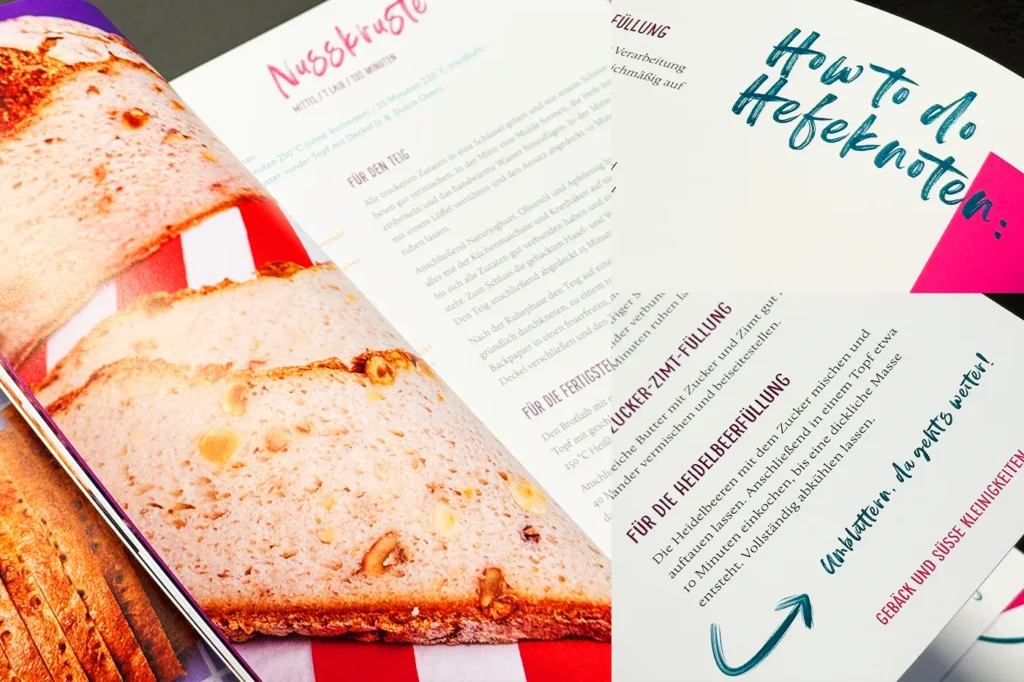 Nusskruste
MITTEL / 1 LAIB / 130 MINUTEN
FÜR DEN TEIG
Alle trockenen Zutaten in eine Schüssel geben und mit einem
besen gut vermischen. In der Mitte eine Mulde formen, die Hefe
einbröseln und das handwarme Wasser hinzufügen. In der Mitte
mit einem Löffel verrühren und den Ansatz abgedeckt 10 Minuten
ruhen lassen.
Anschließend Naturjoghurt, Olivenöl und Apfelessig
alles mit der Küchenmaschine und Knethaken auf
bis sich alle Zutaten gut verbunden haben und
steht. Zum Schluss die gehackten Hasel- und
Den Teig anschließend abgedeckt 15 Minuten
Nach der Ruhephase den Teig auf eine
gründlich durchkneten, zu einem
Backpapier in einen feuerfesten,
Deckel verschließen und den
FÜR DIE FERTIGSTEL
Den Brotlaib mit
Topf mit
250 °C
40
FÜLLUNG
Verarbeitung
ichmäßig auf
How to do
Hefeknoten:
Minuten ruhen
UCKER-ZIMT-FÜLLUNG
eiche Butter mit Zucker und Zimt gut
ander vermischen und beiseitestellen.
FÜR DIE HEIDELBEERFÜLLUNG
Die Heidelbeeren mit dem Zucker mischen und
auftauen lassen. Anschließend in einem Topf etwa
10 Minuten einkochen, bis eine dickliche Masse
entsteht. Vollständig abkühlen lassen.
Umblättern, da gehts weiter!
GEBÄCK UND SÜSSE KLEINIGKEITEN